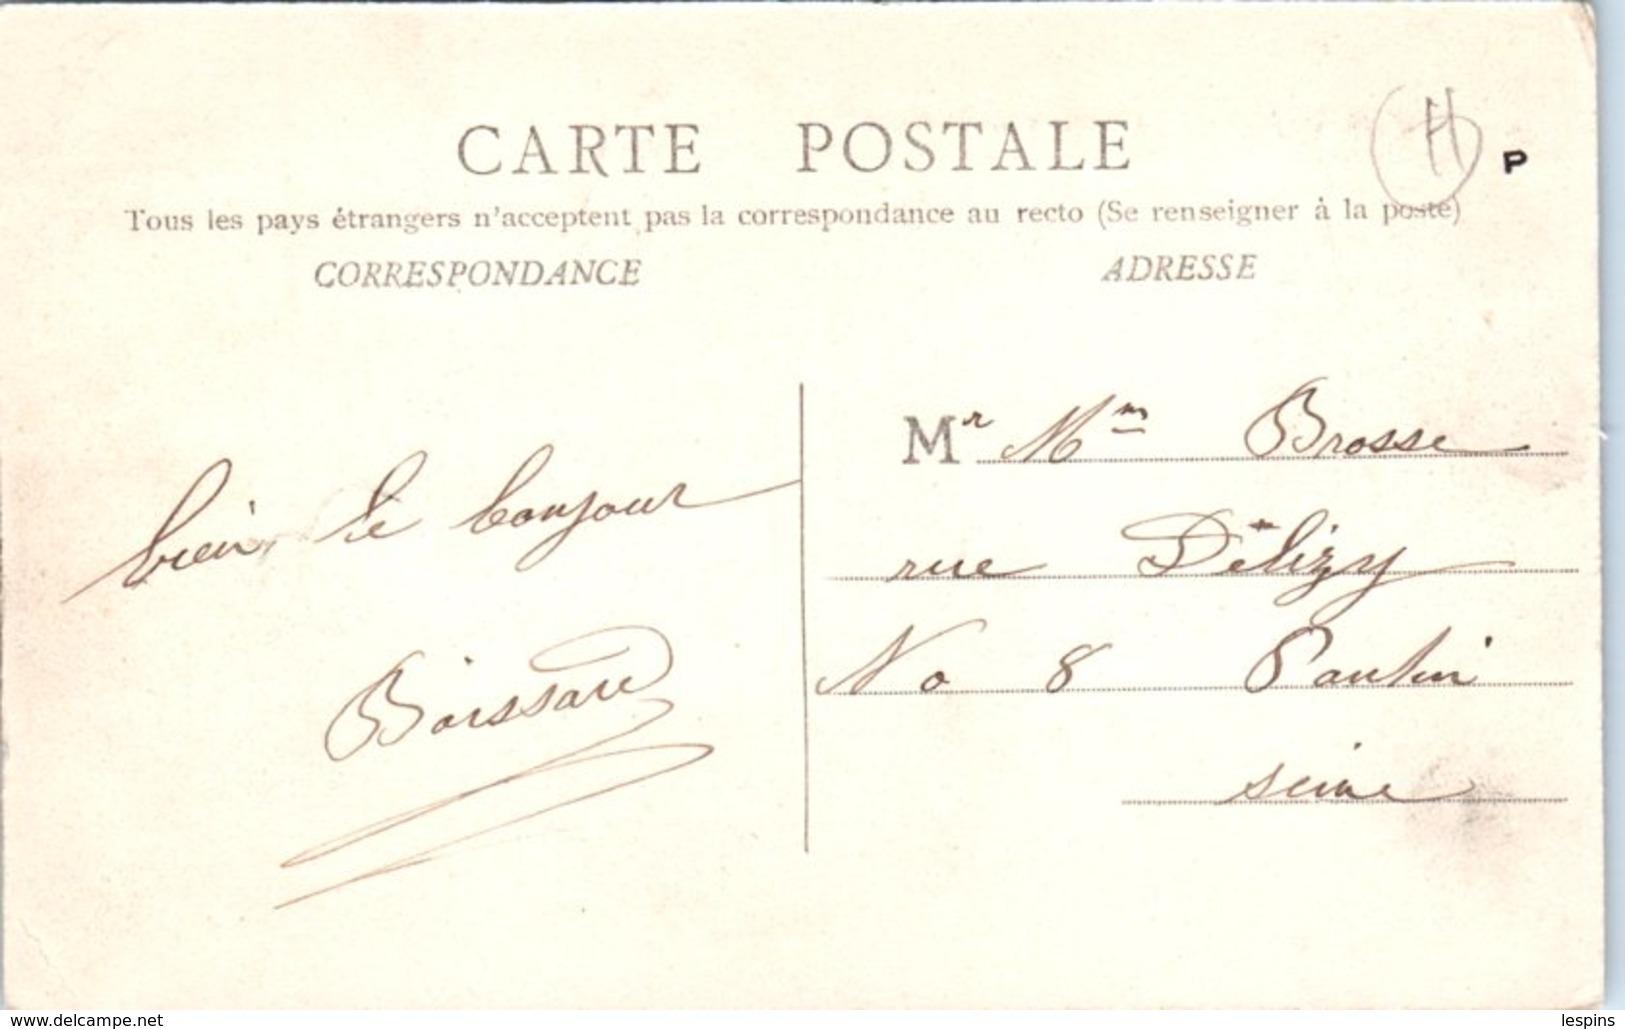 CARTE POSTALE
H
P
Tous les pays étrangers n'acceptent pas la correspondance au recto (Se renseigner à la poste)
CORRESPONDANCE
ADRESSE
bien le bonjour
Boissard
Mr Mm Brosse
rue Délizy
No 8 Pantin
seine
www.delcampe.net
lespins